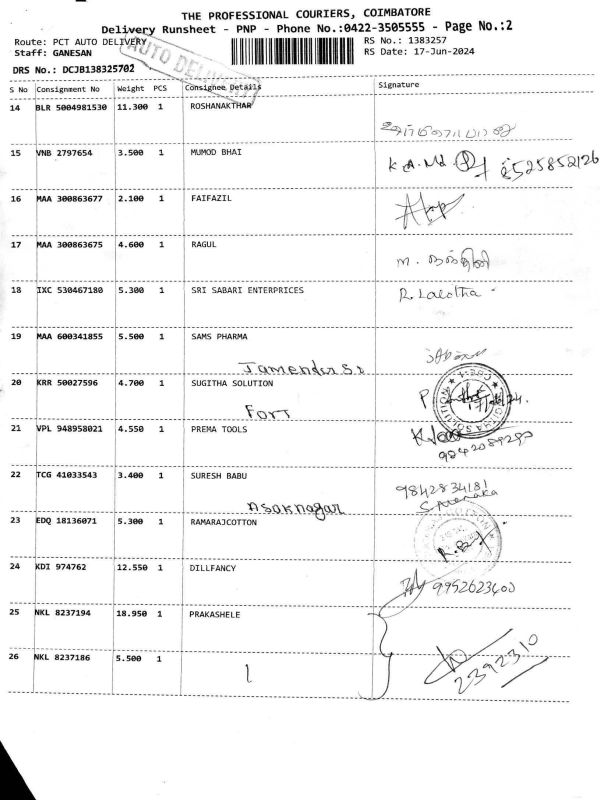 THE PROFESSIONAL COURIERS, COIMBATORE
Delivery Runsheet - PNP - Phone No.:0422-3505555 - Page No.:2
Route: PCT AUTO DELIVERY RS No.: 1383257
Staff: GANESAN RS Date: 17-Jun-2024
AUTO DELIVERY
DRS No.: DCJB138325702
S No Consignment No Weight PCS Consignee Details Signature
14 BLR 5004981530 11.300 1 ROSHANAKTHAR
15 VNB 2797654 3.500 1 MUMOD BHAI
K.A.Md
16 MAA 300863677 2.100 1 FAIFAZIL
17 MAA 300863675 4.600 1 RAGUL
18 IXC 530467180 5.300 1 SRI SABARI ENTERPRICES R. Lalotha
19 MAA 600341855 5.500 1 SAMS PHARMA
Jamender St
20 KRR 50027596 4.700 1 SUGITHA SOLUTION
Fort
21 VPL 948958021 4.550 1 PREMA TOOLS
9842089290
22 TCG 41033543 3.400 1 SURESH BABU 9842834181
Asoknagar S Menaka
23 EDQ 18136071 5.300 1 RAMARAJCOTTON
24 KDI 974762 12.550 1 DILLFANCY
9952623400
25 NKL 8237194 18.950 1 PRAKASHELE
26 NKL 8237186 5.500 1
2392310